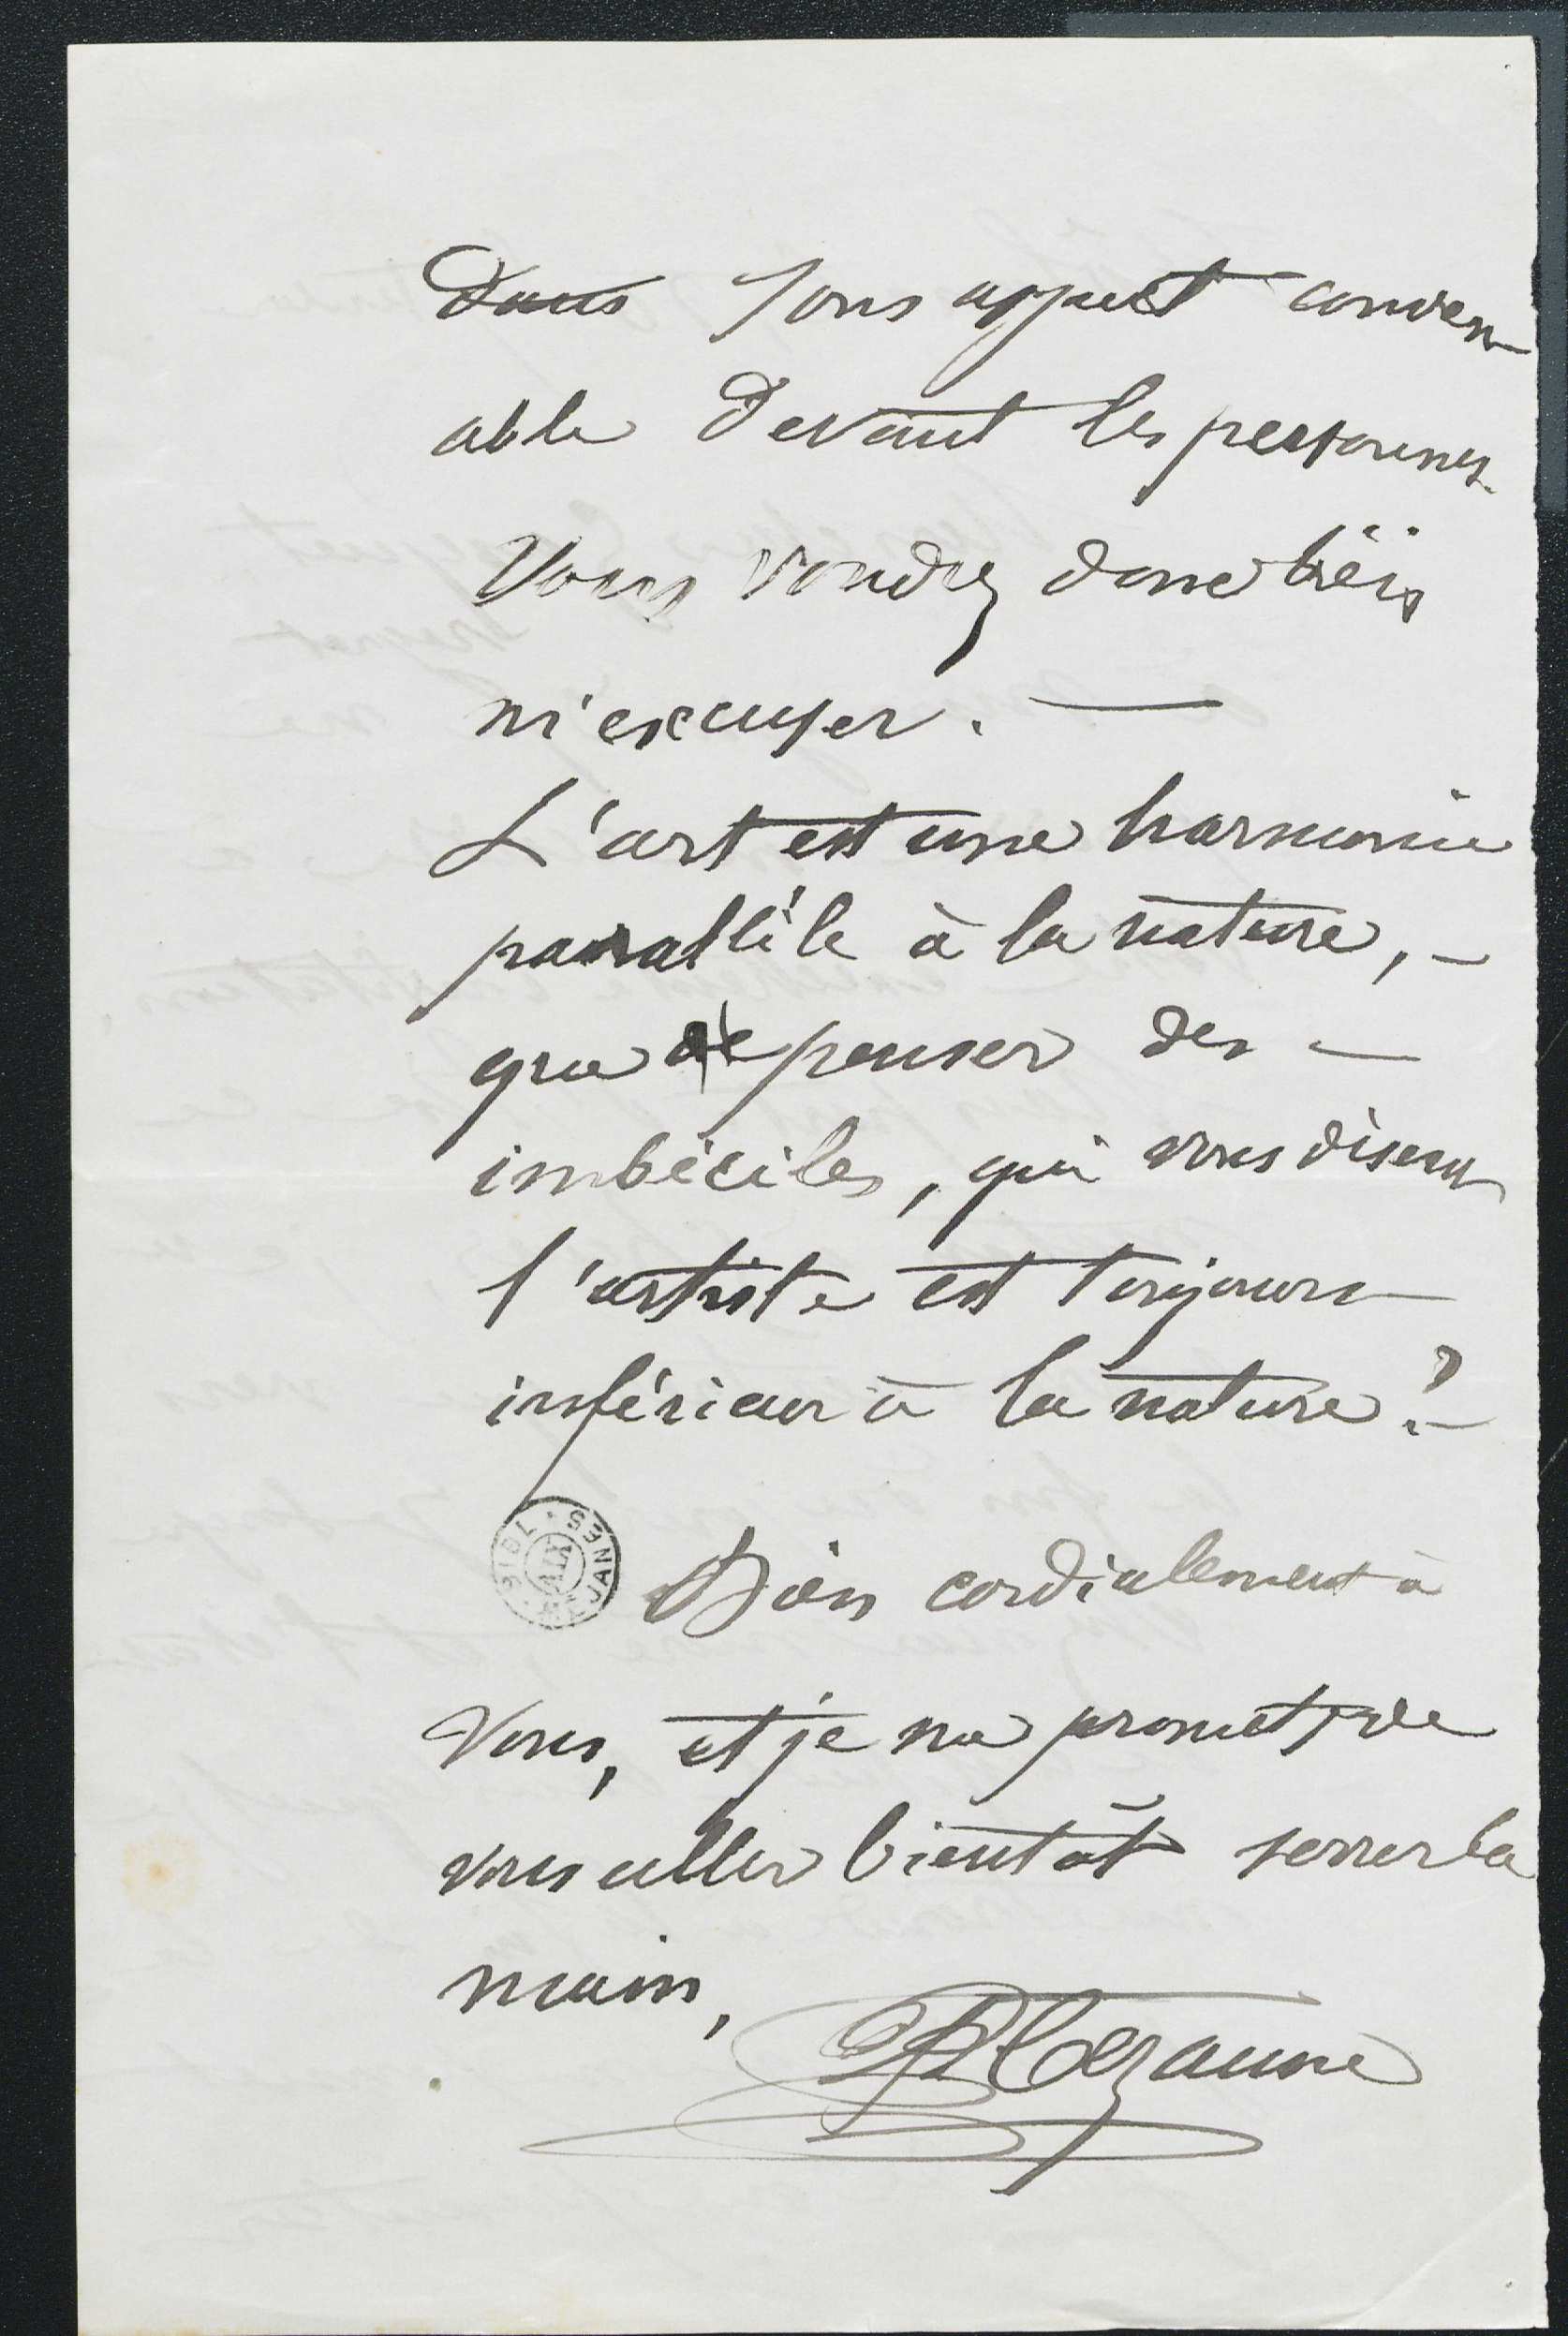 dans sous aspect conven-
able devant les personnes.
Vous voudrez donc bien
m'excuser. —
L'art est une harmonie
parallèle à la nature, —
que de penser des —
imbéciles, qui vous disent
l'artiste est toujours
inférieur à la nature? —
MÉJANES
AIX
BIBL
Bien cordialement à
vous, et je me promets de
vous aller bientôt serrer la
main,
P Cezanne